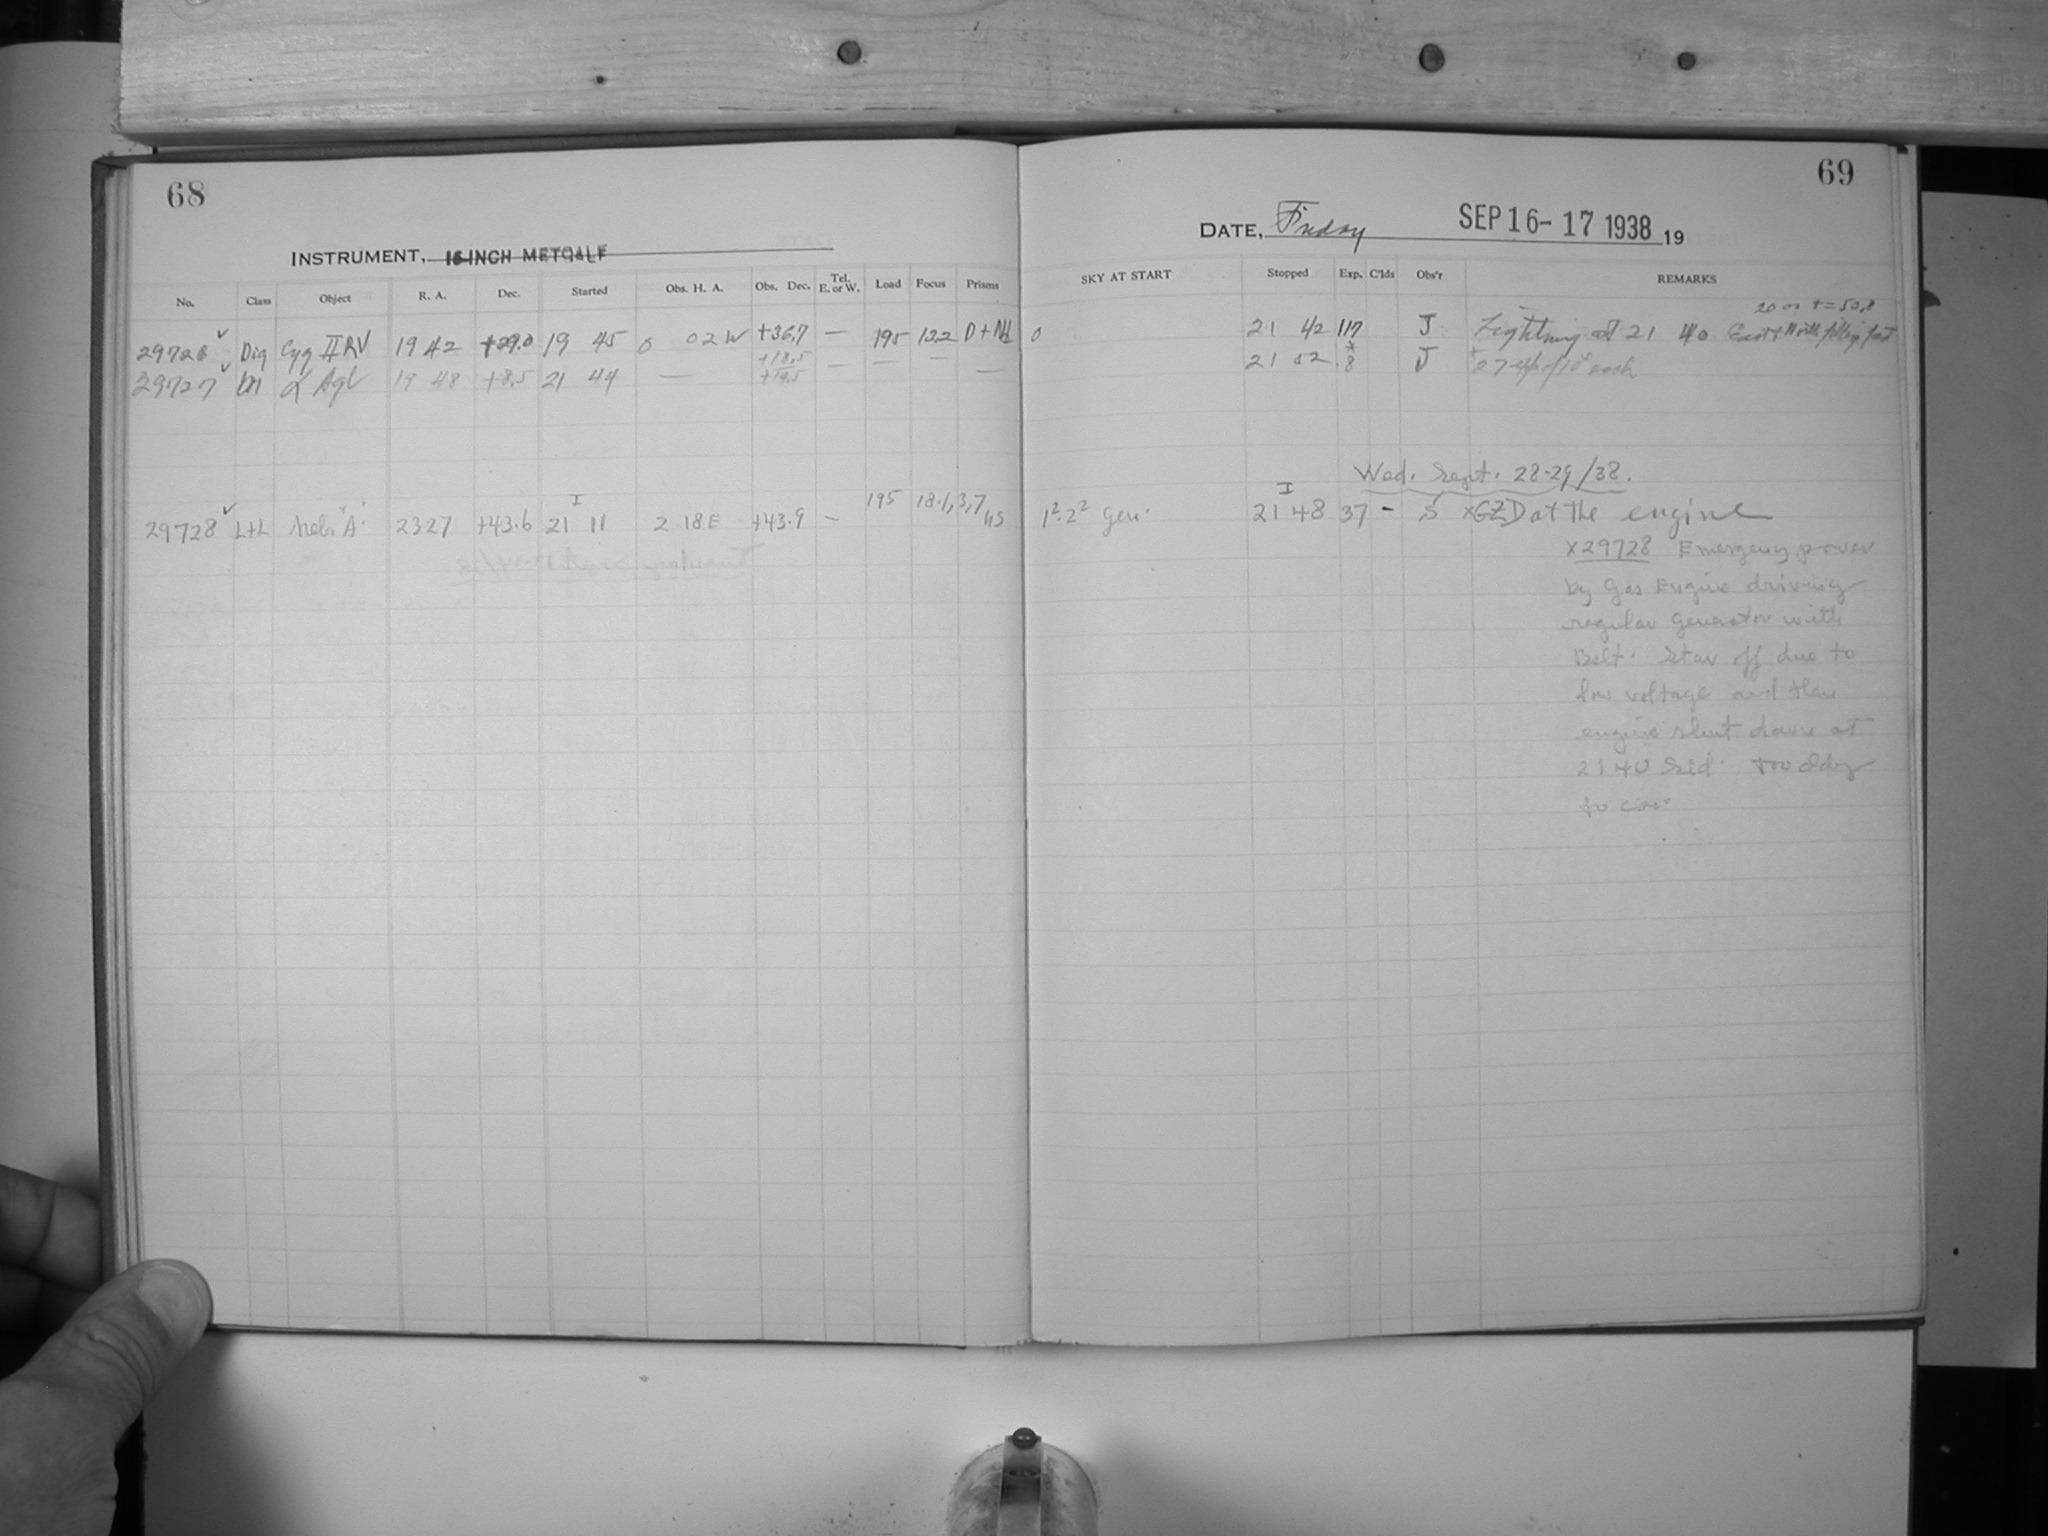 68
INSTRUMENT, 16-INCH METCALF
No. Class Object R. A. Dec. Started Obs. H. A. Obs. Dec. Tel. E. or W. Load Focus Prisms
29726 ✓ Cyg II RV 19 42 +29.0 19 45 0 02 W +36.7 — 195 13.2
29727 ✓ α Aql 19 48 +8.5 21 44 — +18.5 +19.5 — — — —
29728 ✓ L+L Neb. "A" 23 27 +43.6 21 11 I 2 18 E +43.9 — 195 18.1, 3, 7
69
DATE, Friday SEP 16-17 1938 19
SKY AT START Stopped Exp. C'lds Obs'r REMARKS
0 21 42 117 J Lightning at 21 40 East + North
21 52 8* J * 27 of each
Wed. Sept. 28-29/38.
21 48 I 37 - S xGZD at the engine
x 29728 Emergency power
by Gas Engine driving
regular Generator with
Belt. Star off due to
low voltage and then
engine shut down at
21 40 Sid.